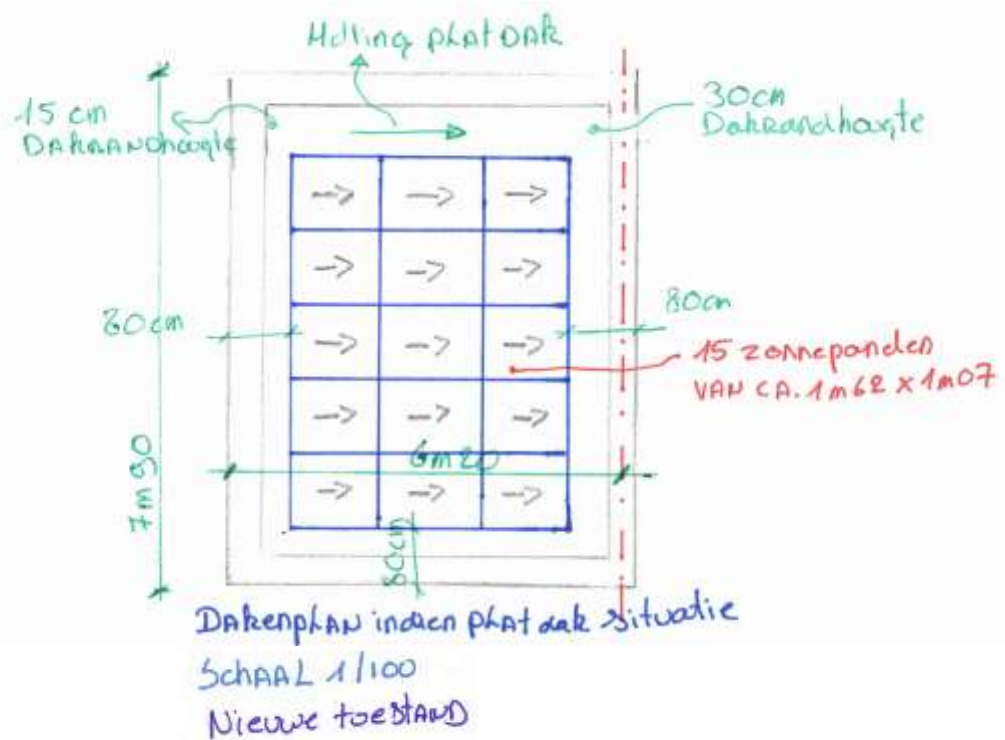 Helling plat DAK
15 cm
DAKRANDhoogte
30cm
Dakrandhoogte
80cm
80cm
15 zonnepanelen
VAN CA. 1m62 x 1m07
7m90
6m20
80cm
DAKenplAN indien plat dak situatie
SchAAL 1/100
Nieuwe toestAND